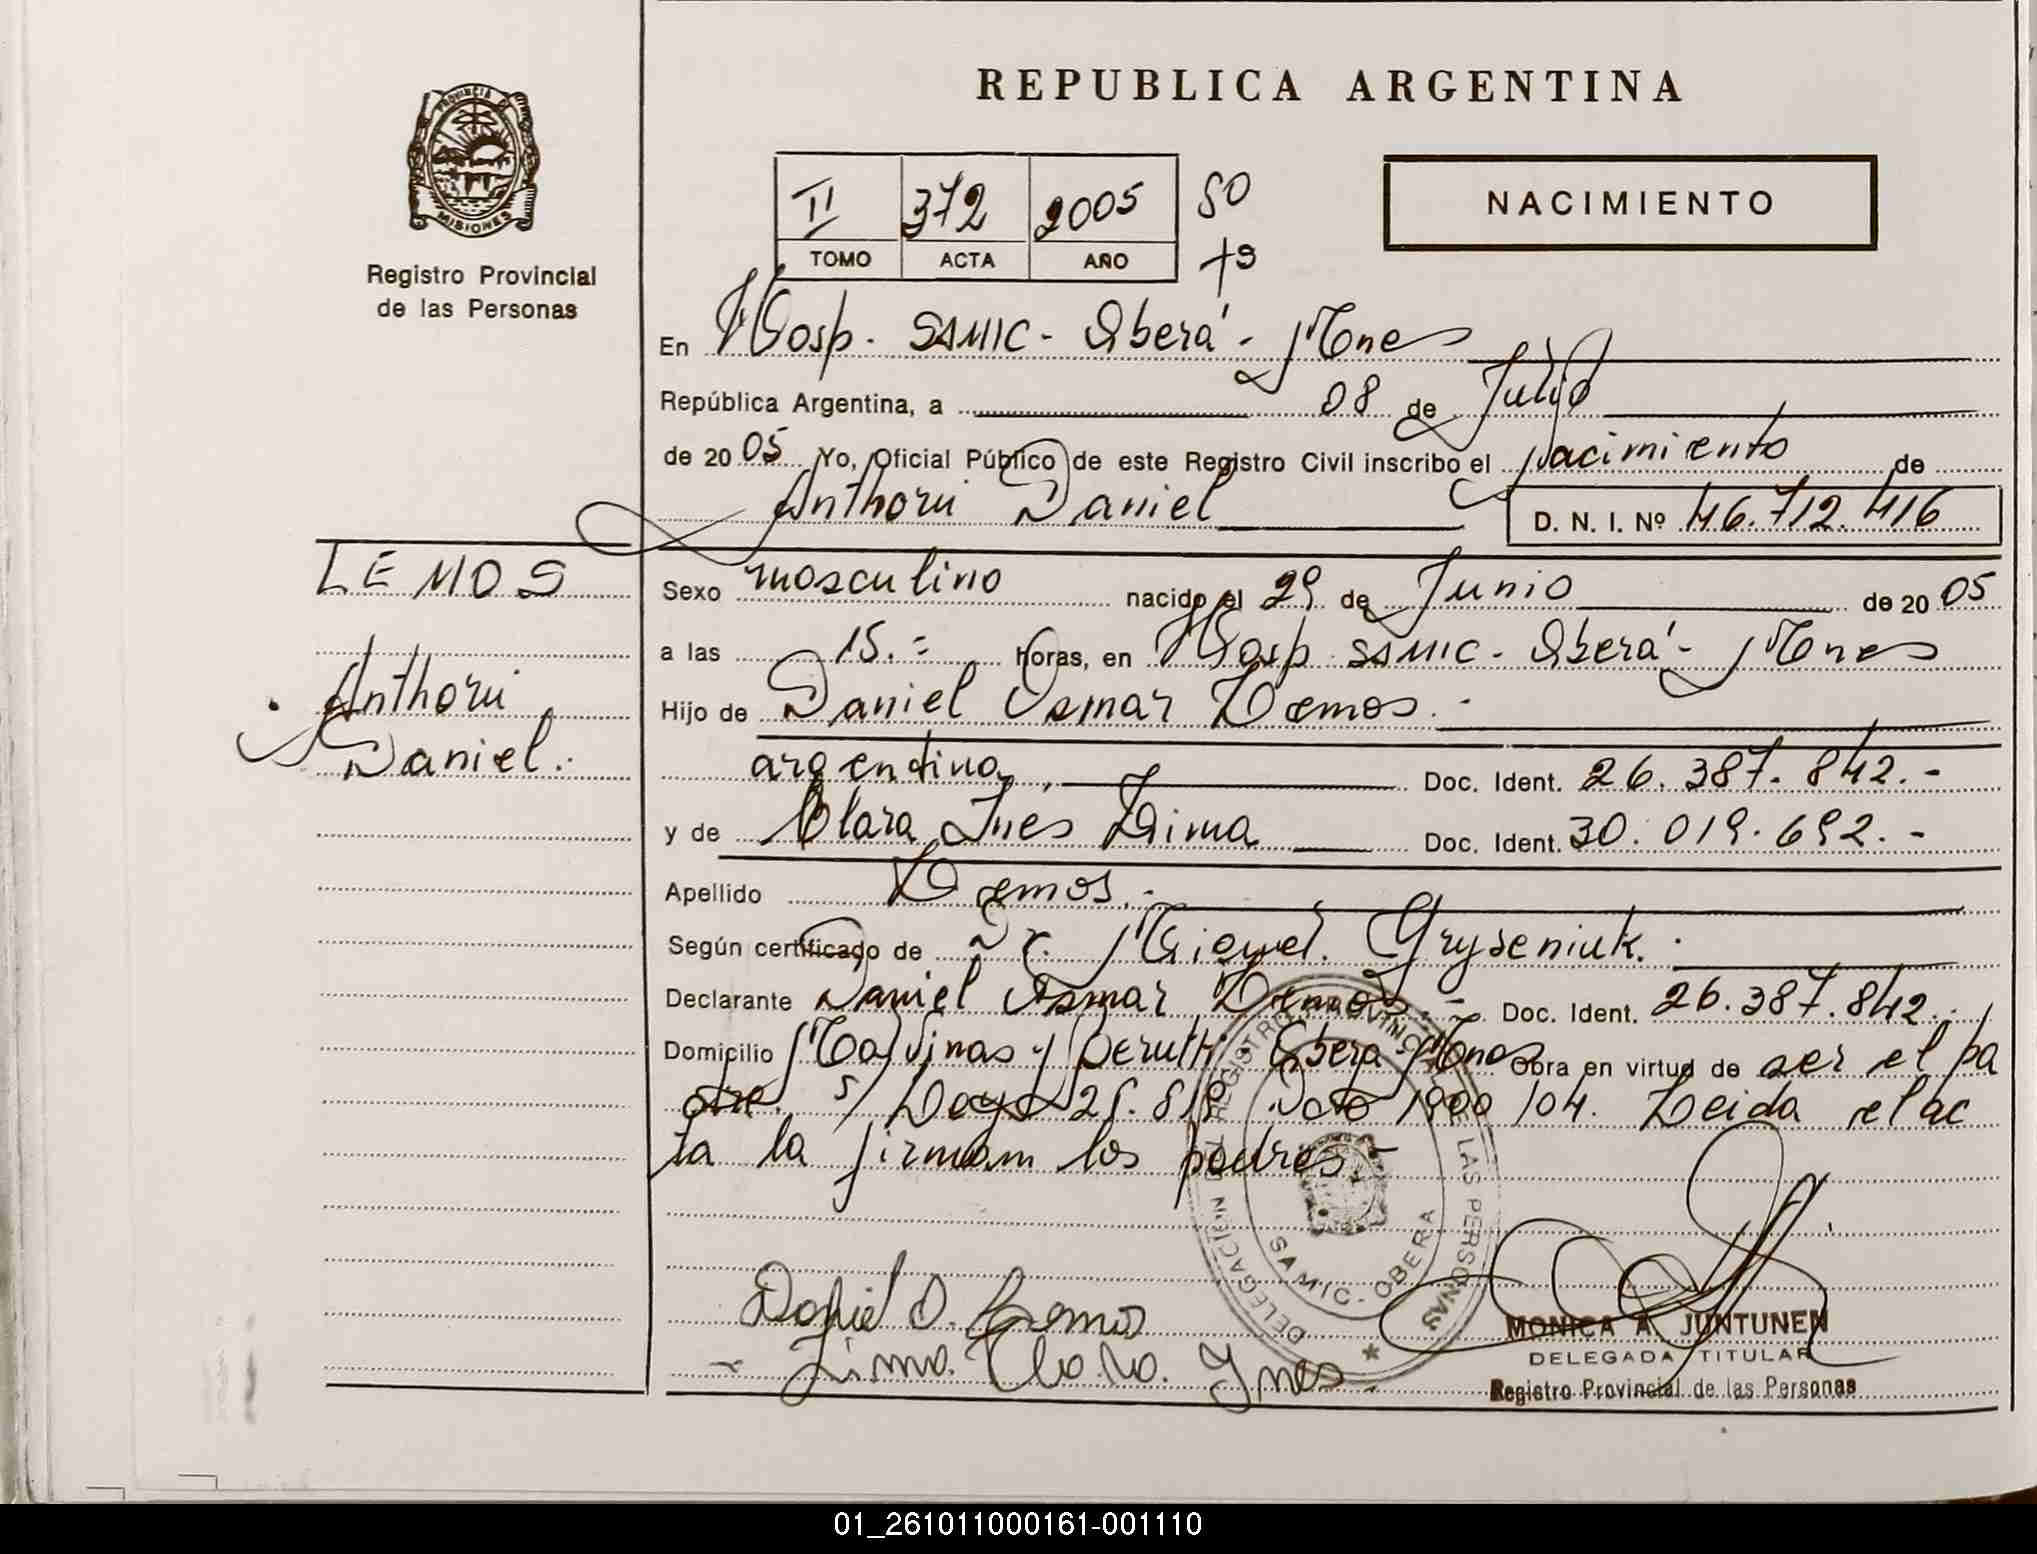 REPUBLICA ARGENTINA
PROVINCIA DE
MISIONES
Registro Provincial
de las Personas
II 372 2005 50
TOMO ACTA AÑO
NACIMIENTO
En Hosp. SAMIC - Oberá - Mnes
República Argentina, a 08 de Julio
de 20 05 Yo, Oficial Público de este Registro Civil inscribo el Nacimiento de
Anthoni Daniel
D. N. I. Nº 46.712.416
LEMOS
Anthoni
Daniel.
Sexo masculino nacido el 29 de Junio de 20 05
a las 15.= horas, en Hosp SAMIC - Oberá - Mnes
Hijo de Daniel Osmar Lemos.-
argentino, Doc. Ident. 26.387.842.-
y de Clara Ines Lima Doc. Ident. 30.019.692.-
Apellido Lemos.-
Según certificado de Dr. Miguel. Gryseniuk.
Declarante Daniel Osmar Lemos.- Doc. Ident. 26.387.842.-
Domicilio Malvinas y Beruti. Oberá - Mnes Obra en virtud de ser el pa
dre. s/ Leyes 25.819 Dcto 1900/04. Leida el ac
ta la firman los padres.-
DELEGACION REGISTRO PROVINCIAL DE LAS PERSONAS
SAMIC - OBERA
Daniel O. Lemos
Lima. Clara. Ynes.
MONICA A. JUNTUNEN
DELEGADA TITULAR
Registro Provincial de las Personas
01_261011000161-001110